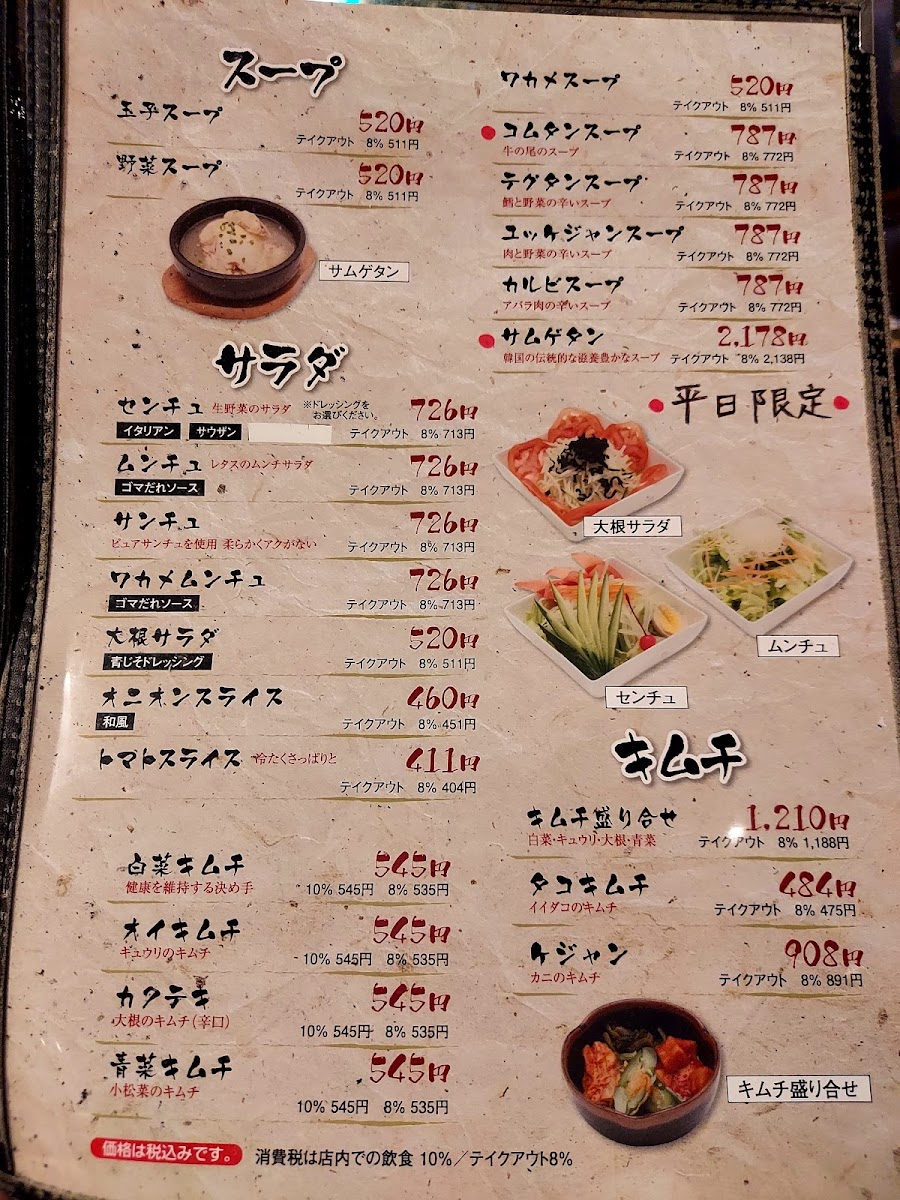 スープ
玉子スープ 520円
テイクアウト 8% 511円
野菜スープ 520円
テイクアウト 8% 511円
サムゲタン
ワカメスープ 520円
テイクアウト 8% 511円
コムタンスープ 787円
牛の尾のスープ テイクアウト 8% 772円
テグタンスープ 787円
鱈と野菜の辛いスープ テイクアウト 8% 772円
ユッケジャンスープ 787円
肉と野菜の辛いスープ テイクアウト 8% 772円
カルビスープ 787円
アバラ肉の辛いスープ テイクアウト 8% 772円
サムゲタン 2,178円
韓国の伝統的な滋養豊かなスープ テイクアウト 8% 2,138円
平日限定
サラダ
センチュ 生野菜のサラダ ※ドレッシングを
お選びください。 726円
イタリアン サウザン テイクアウト 8% 713円
ムンチュ レタスのムンチサラダ 726円
ゴマだれソース テイクアウト 8% 713円
サンチュ 726円
ピュアサンチュを使用 柔らかくアクがない テイクアウト 8% 713円
ワカメムンチュ 726円
ゴマだれソース テイクアウト 8% 713円
大根サラダ 520円
青じそドレッシング テイクアウト 8% 511円
オニオンスライス 460円
和風 テイクアウト 8% 451円
トマトスライス 冷たくさっぱりと 411円
テイクアウト 8% 404円
大根サラダ
ムンチュ
センチュ
キムチ
白菜キムチ 545円
健康を維持する決め手 10% 545円 8% 535円
オイキムチ 545円
キュウリのキムチ 10% 545円 8% 535円
カクテキ 545円
大根のキムチ(辛口) 10% 545円 8% 535円
青菜キムチ 545円
小松菜のキムチ 10% 545円 8% 535円
キムチ盛り合せ 1,210円
白菜・キュウリ・大根・青菜 テイクアウト 8% 1,188円
タコキムチ 484円
イイダコのキムチ テイクアウト 8% 475円
ケジャン 908円
カニのキムチ テイクアウト 8% 891円
キムチ盛り合せ
価格は税込みです。 消費税は店内での飲食 10%/テイクアウト8%